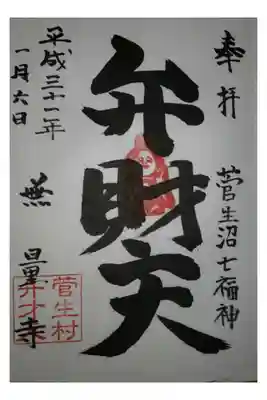 奉拝
菅生沼七福神
弁財天
平成三十一年
一月六日
無量寺
菅生村
弁才